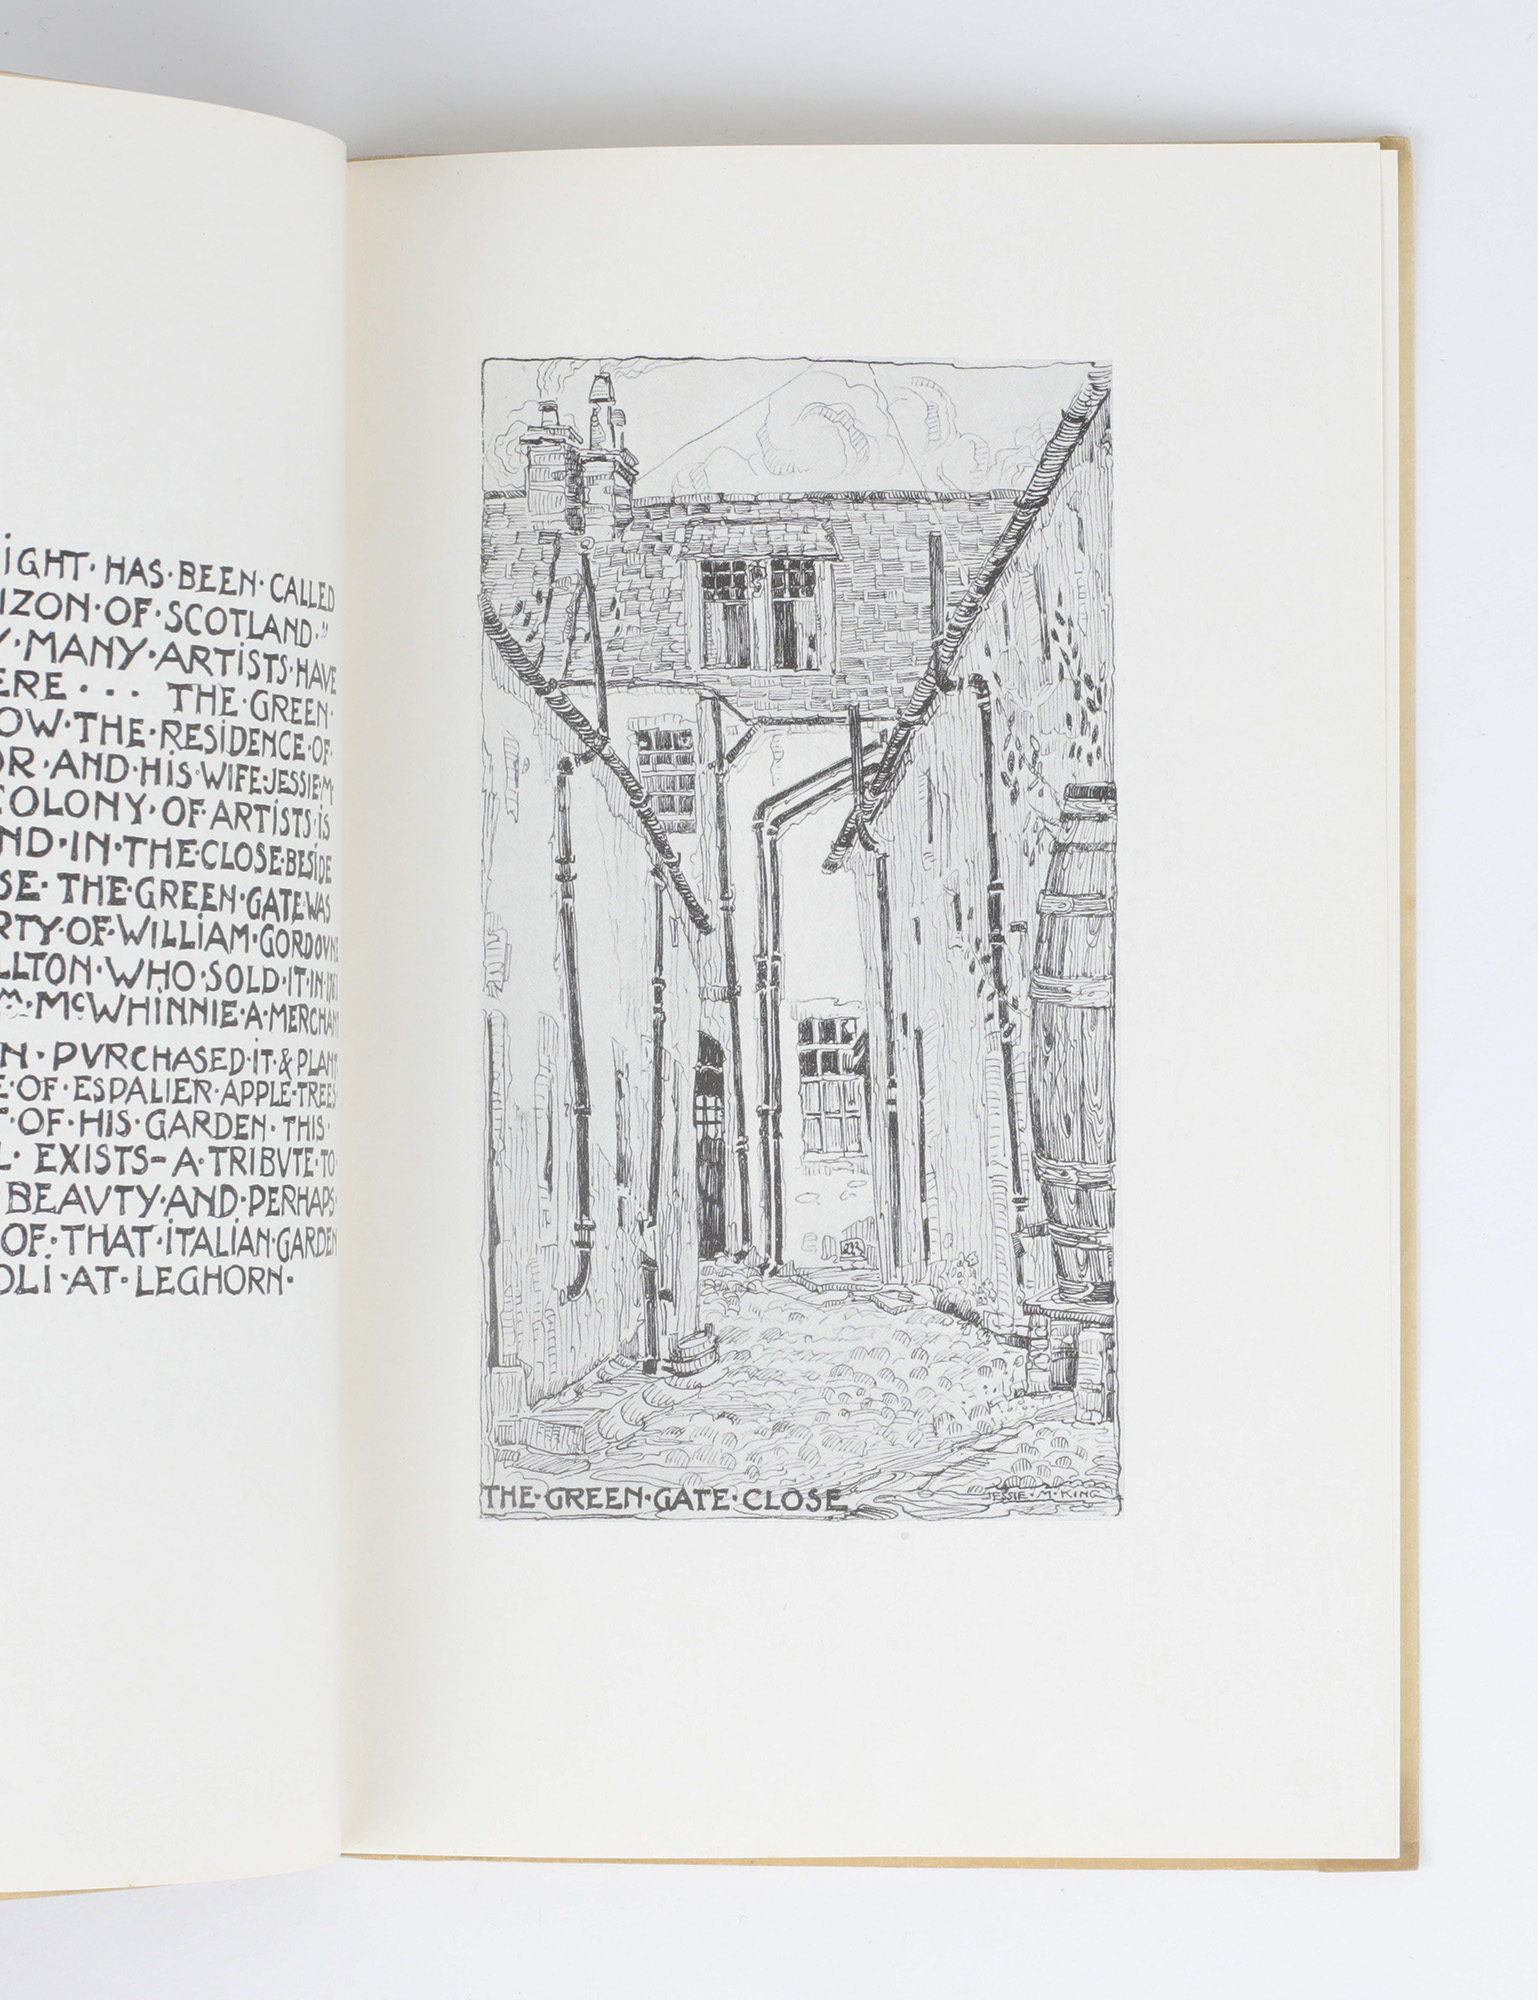 iGHT · HAS · BEEN · CALLED
IZON · OF · SCOTLAND · "
Y · MANY · ARTiSTS · HAVE
ERE · · · THE · GREEN ·
OW · THE · RESiDENCE · OF ·
OR · AND · HiS · WIFE · JESSIE · M
COLONY · OF · ARTiSTS · iS
ND · IN · THE · CLOSE · BESiDE
SE · THE · GREEN · GATE · WAS
RTY · OF · WiLLiAM · GORDOVNE
LLTON · WHO · SOLD · iT · iN ·
M · McWHiNNIE · A · MERCHANT
N · PVRCHASED · iT · & PLANT
E · OF · ESPALiER · APPLE · TREES
T · OF · HIS · GARDEN · THIS ·
L · EXISTS – A · TRIBVTE · TO ·
BEAVTY · AND · PERHAPS ·
OF · THAT · iTALiAN · GARDEN
OLi · AT · LEGHORN ·
THE · GREEN · GATE · CLOSE
JESSIE · M · KING